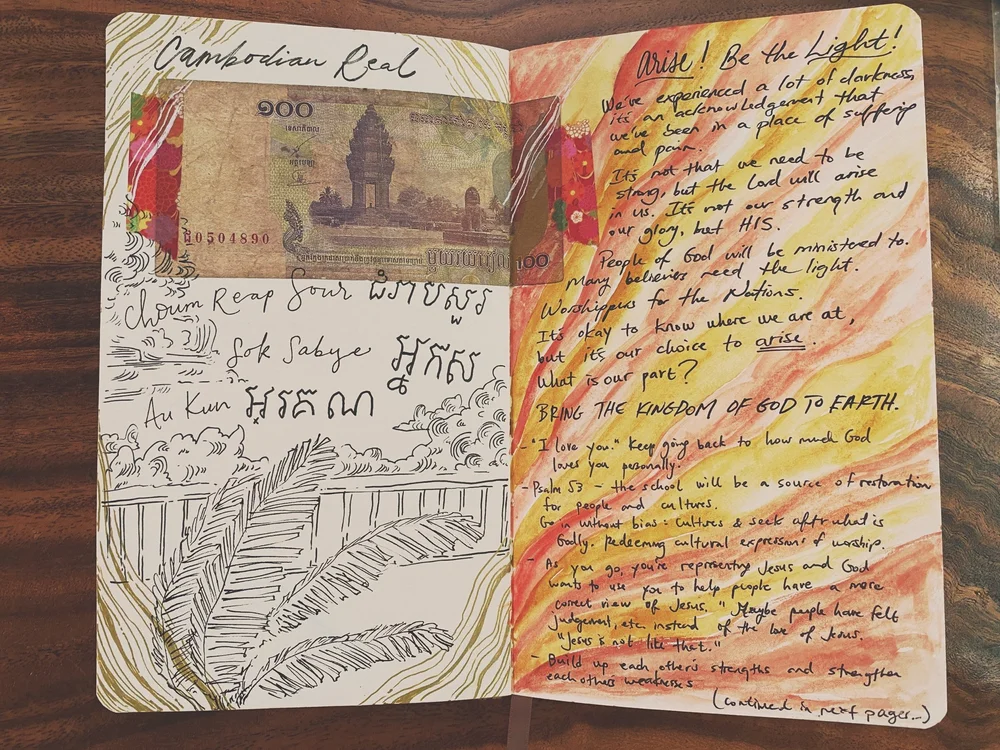 Cambodian Real
១០០
0504890
100
Choum Reap Sour ជំរាបសួរ
Sok Sabye អ្នកស
Au Kun អរគណ
Arise! Be the Light!
We've experienced a lot of darkness,
it's an acknowledgement that
we've been in a place of suffering
and pain.
It's not that we need to be
strong, but the Lord will arise
in us. It's not our strength and
our glory, but HIS.
People of God will be ministered to.
Many believers need the light.
Worshippers for the Nations.
It's okay to know where we are at,
but it's our choice to arise.
What is our part?
BRING THE KINGDOM OF GOD TO EARTH.
- "I love you." Keep going back to how much God
loves you personally.
- Psalm 53 - the school will be a source of restoration
for people and cultures.
Go in without bias: Cultures & seek after what is
Godly. Redeeming cultural expressions of worship.
- As you go, you're representing Jesus and God
wants to use you to help people have a more
correct view of Jesus. " Maybe people have felt
judgement, etc. instead of the love of Jesus.
"Jesus is not like that."
- Build up each other's strengths and strengthen
each other's weaknesses
(continued in next pages...)